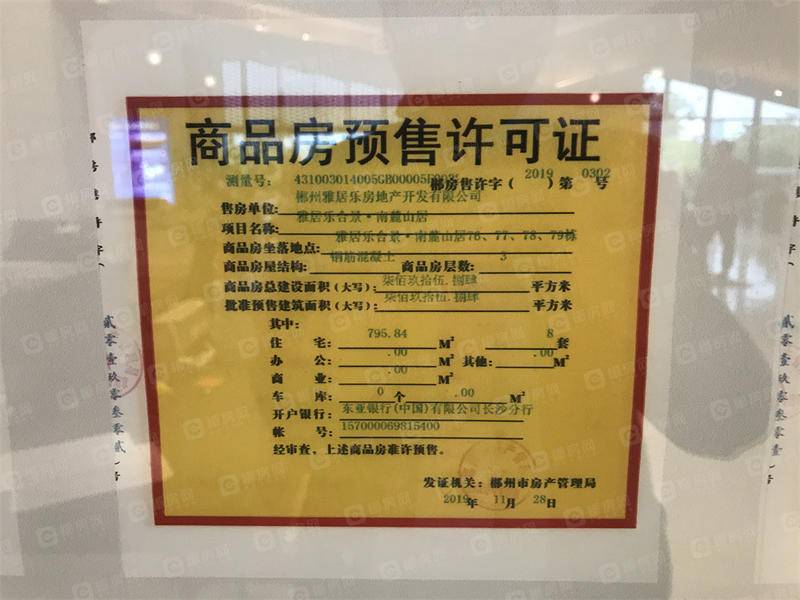 商品房预售许可证
测量号: 431003014005GB00005
郴房售许字( 2019 )第 0302 号
售房单位: 郴州雅居乐房地产开发有限公司
项目名称: 雅居乐合景·南麓山居
商品房坐落地点: 雅居乐合景·南麓山居76、77、78、79栋
商品房屋结构: 钢筋混凝土 商品房层数: 3
商品房总建设面积(大写): 柒佰玖拾伍.捌肆 平方米
批准预售建筑面积(大写): 柒佰玖拾伍.捌肆 平方米
其中:
住 宅: 795.84 M² 8 套
办 公: .00 M² 其他: .00 M²
商 业: .00 M²
车 库: 0 个 .00 M²
开户银行: 东亚银行(中国)有限公司长沙分行
帐 号: 157000069815400
经审查,上述商品房准许预售。
发证机关: 郴州市房产管理局
2019年 11月 28日
郴房售许字(
贰零壹玖零叁零贰号